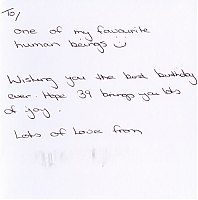 To/
one of my favourite
human beings ☺
Wishing you the best birthday
ever. Hope 39 brings you lots
of joy.
Lots of Love from